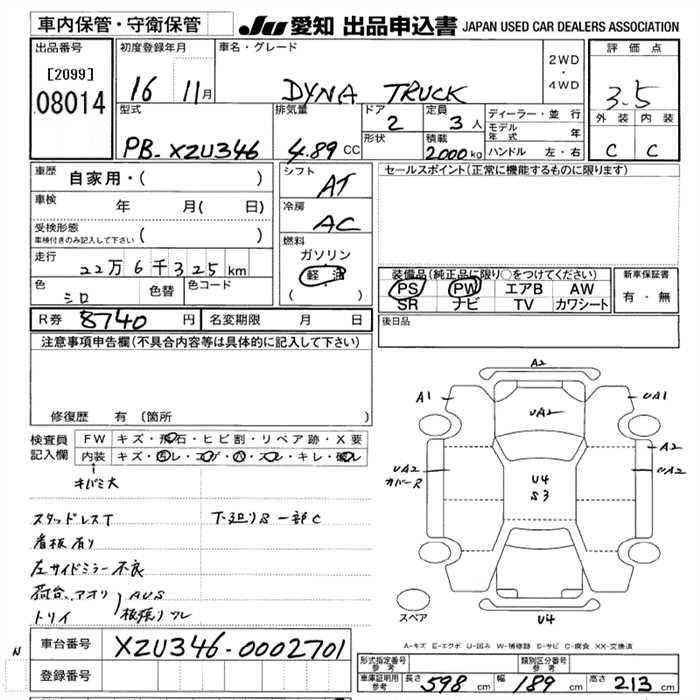 車内保管・守衛保管
JU 愛知 出品申込書 JAPAN USED CAR DEALERS ASSOCIATION
出品番号
[2099]
08014
初度登録年月
16 11月
車名・グレード
DYNA TRUCK
2WD
・
4WD
評価点
3.5
外装 内装
C C
型式
PB-XZU346
排気量
4.89 CC
ドア
2
形状
定員
3人
積載
2000kg
ディーラー・並行
モデル年式 年
ハンドル 左・右
車歴
自家用・( )
車検
年 月( 日)
受検形態
車検付きのみ記入して下さい ( )
走行
22万6千325km
色
シロ
色替
色コード
シフト
AT
冷房
AC
燃料
ガソリン
軽油
( )
セールスポイント(正常に機能するものに限ります)
装備品(純正品に限り○をつけてください)
PS PW エアB AW
SR ナビ TV カワシート
新車保証書
有・無
R券 8740 円
名変期限 月 日
後日品
注意事項申告欄(不具合内容等は具体的に記入して下さい)
修復歴 有 (箇所 )
検査員
記入欄
FW キズ・飛石・ヒビ割・リペア跡・X要
内装 キズ・汚レ・コゲ・穴・スレ・キレ・破レ
キバミ大
スタッドレスT
下廻りS 一部C
看板有り
左サイドミラー不良
荷台、アオリ
AUS
トリイ
板張りワレ
A2
A1
UA1
UA2
A2
UA2
カバーR
UA2
U4
S3
U4
スペア
A-キズ E-エクボ U-凹み W-補修跡 S-サビ C-腐食 XX-交換済
N
車台番号
XZU346-0002701
登録番号
形式指定番号
参考
類別区分番号
参考
車庫証明用
参考
長さ 598 cm 幅 189 cm 高さ 213 cm